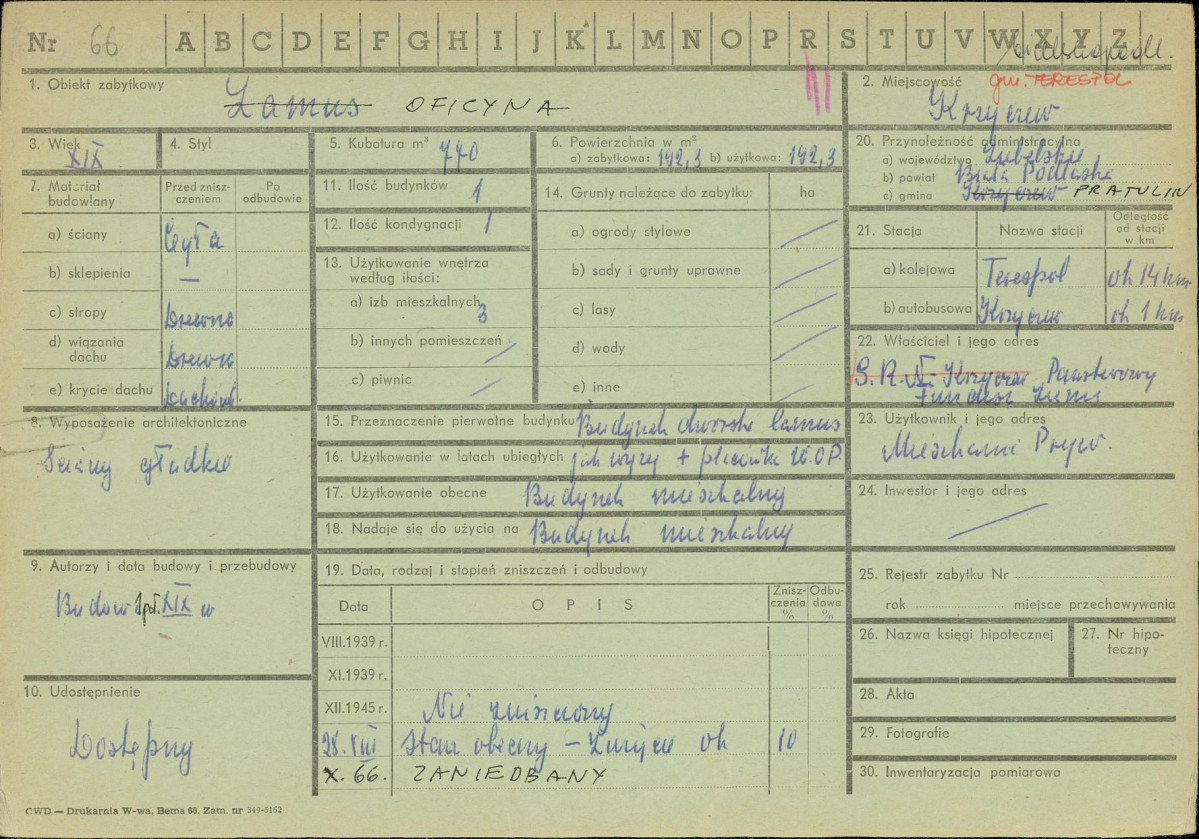 Nr 66 A B C D E F G H I J K L M N O P R S T U V W X Y Z
1. Obiekt zabytkowy
Lamus OFICYNA
2. Miejscowość gm. TERESPOL
Krzyczew
3. Wiek XIX
4. Styl
5. Kubatura m³ 770
6. Powierzchnia w m²
a) zabytkowa: 192,3 b) użytkowa: 192,3
20. Przynależność administracyjna
a) województwo Lubelskie
b) powiat Biała Podlaska
c) gmina Krzyczew PRATULIN
7. Materiał budowlany
Przed zniszczeniem
Po odbudowie
a) ściany Cegła
b) sklepienia —
c) stropy Drewno
d) wiązania dachu Drewno
e) krycie dachu Dachówk.
11. Ilość budynków 1
12. Ilość kondygnacji 1
13. Użytkowanie wnętrza
według ilości:
a) izb mieszkalnych 3
b) innych pomieszczeń /
c) piwnic /
14. Grunty należące do zabytku: ha
a) ogrody stylowe /
b) sady i grunty uprawne /
c) lasy /
d) wody /
e) inne /
21. Stacja
Nazwa stacji
Odległość od stacji w km
a) kolejowa Terespol ok 14 km
b) autobusowa Krzyczew ok 1 km
22. Właściciel i jego adres
Krzyczew Państwowy
Fundusz Ziemi
8. Wyposażenie architektoniczne
Ściany gładkie
15. Przeznaczenie pierwotne budynku Budynek dworski Lamus
16. Użytkowanie w latach ubiegłych jak wyżej + placówka W.O.P.
17. Użytkowanie obecne Budynek mieszkalny
18. Nadaje się do użycia na Budynek mieszkalny
23. Użytkownik i jego adres
Mieszkania Pryw.
24. Inwestor i jego adres
/
9. Autorzy i data budowy i przebudowy
Budow. I poł. XIX w
19. Data, rodzaj i stopień zniszczeń i odbudowy
Data
O P I S
Zniszczenia %
Odbudowa %
VIII.1939 r.
XI.1939 r.
XII.1945 r. Nie zniszczony
28. VIII Stan obecny – Zużycie ok 10
X. 66. ZANIEDBANY
25. Rejestr zabytku Nr
rok miejsce przechowywania
26. Nazwa księgi hipotecznej
27. Nr hipoteczny
10. Udostępnienie
Dostępny
28. Akta
29. Fotografie
30. Inwentaryzacja pomiarowa
CWD — Drukarnia W-wa, Bema 60. Zam. nr 349-5162